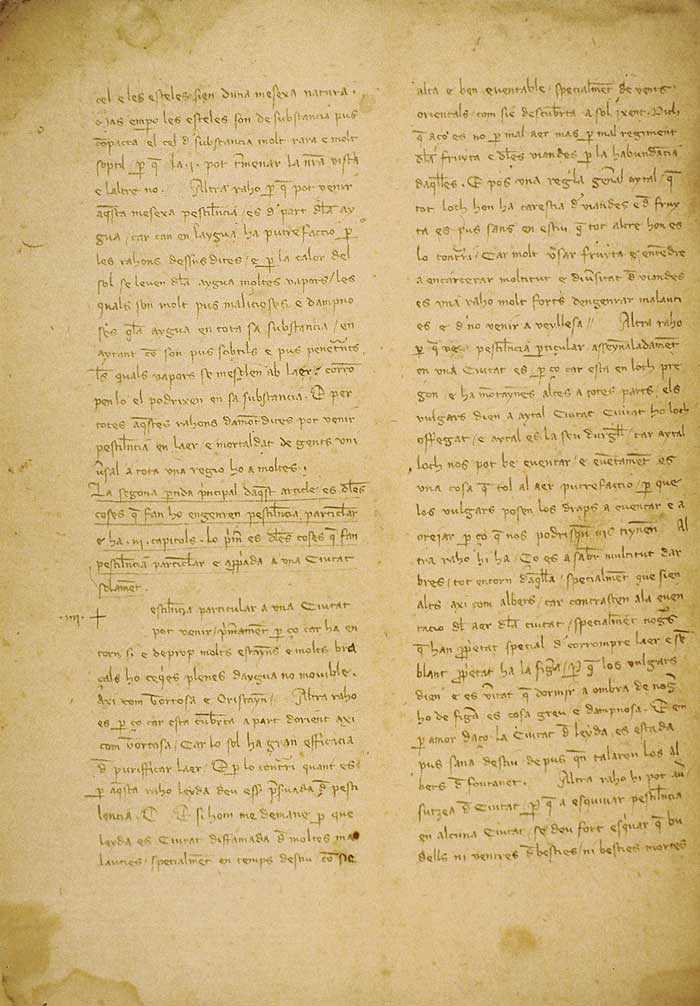 cel e les esteles sien duna mesexa natura.
Mas empo les esteles son de substancia pus
compacta el cel d substancia molt rara e molt
soptil p q la .i. pot tmenar la nra vista
e laltre no. Altra raho p q pot venir
aqsta mesexa pestilncia / es d part dla ay
gua / car can en laygua ha putrefaccio p
les rahons dessusdites / e p la calor del
sol se leven dla aygua moltes vapors / les
quals son molt pus malicioses e dampno
ses qla aygua en tota sa substancia / en
aytant co son pus sobtils e pus penetnts
les quals vapors se mesclen ab laer corro
penlo el podrixen en sa substancia. E per
totes aqstes rahons damotdites pot venir
pestilncia en laer e mortaldat de gents uni
vsal a tota una regio ho a moltes.
La segona ptida pncipal daqst article es dles
coses q fan ho engenren pestilncia particlar
e ha .iij. capitols. lo pm es dles coses q fan
pestilncia particlar e apppada a una Ciutat
solamet.
.iiij. estilncia particular a una Ciutat
pot venir / pmamet p ço car ha en
torn si e deprop molts estayns e molts bra
cals ho ceqes plenes daygua no movible.
Axi com Tortosa e Oristayn / Altra raho
es p ço car esta cubrta a part dorient axi
com Tortosa / Car lo sol ha gran efficacia
d purifficar laer / E p lo contri quant es
p aqsta raho leyda deu esser psuada d pesti
lencia. E si hom me demane p que
leyda es Ciutat diffamada d moltes ma
lauties / specialmet en temps destiu co sie
alta e ben eventable / specialmet de vents
orientals / com sie descubrta a sol ixent. Dich
q aço es no p mal aer mas p mal regiment
dla fruyta e dles viandes p la habundacia
daqlles. E pos una regla genal aytal / q
tot loch hon ha carestia d viandes e d fruy
ta es pus sans en estiu q tot altre hon es
lo contri / Car molt usar fruyta e entedre
a encarcerar moltitut e diusitat d viandes
es una raho molt forts dengenrar malauti
es e d no venir a veyllesa // Altra raho
p q ve pestilncia pticular assenyaladamet
en una Ciutat es p ço car esta en loch pre
gon e ha motaynes altes a totes parts / els
vulgars dien a aytal Ciutat Ciutat ho loch
offegat / e aytal es la seu durgll / car aytal
loch nos pot be eventar / e evetamet es
una cosa q tol al aer putrefaccio / p que
los vulgars posen los draps a eventar e a
orejar p ço q nos podrisqn tiynen Al
tra raho hi ha / Co es a sabr multitut dar
bres / tot entorn daqlla / specialmet que sien
alts axi com albers / car contrasten ala even
tacio dl aer dla ciutat / specialmet nogs
q han ppetat special d corrompre laer e sem
blant ppetat ha la figa / p q los vulgars
dien e es vitat q dormir a ombra de nog
ho de figa es cosa greu e dampnosa. E en
p amor daço la Ciutat d leyda es estada
pus sana destiu depus qn talaren los al
bers d fontanet. Altra raho hi pot
sutzea d Ciutat / p q a esquivar pestilncia
en alcuna Ciutat / se deu fort esqvar q bu
dells ni ventres d besties / ni besties mortes